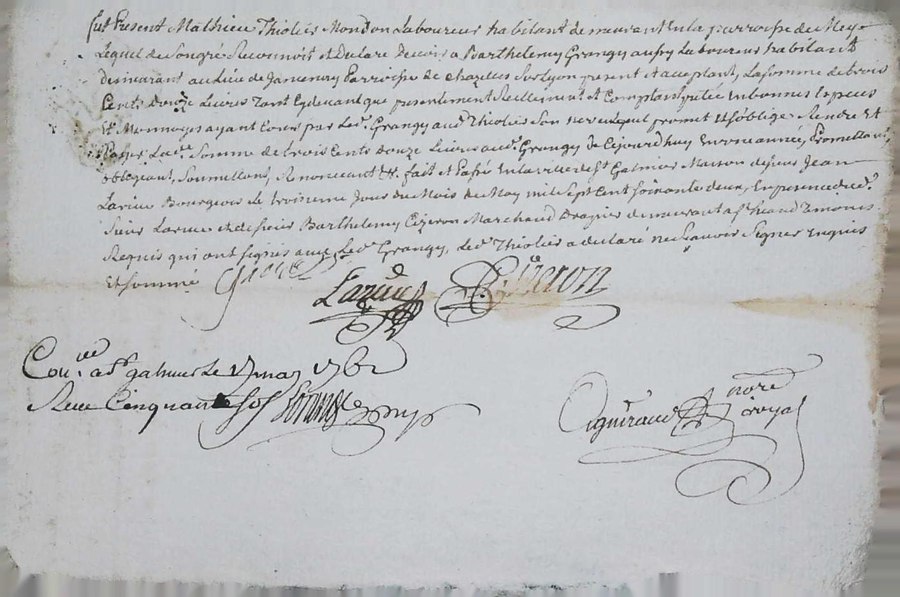 fut Present Mathieu Thiolés Mondon Laboureur habitant demeurant en la parroisse de
Lequel de son gré Reconnoit et declare devoir a Barthelemy Grangy aussy Laboureur habitant
demeurant au Lieu de parroisse de Chazelles sur Lyon present et acceptant, La somme de trois
Cents douze Livres tant cydevant que presentement Reellement et Comptant en bonnes Especes
Et Monnoyes ayant Cours par Led. Grangy aud. Thiolés promet et s'oblige Rendre Et
Payer Lad.e Somme de trois Cents douze Livres aud. Grangy de Cejourdhuy en une année, Promettant
obligeant, Soumettant, Renonceant &c. fait et Passé En la ville de St Galmier Maison de sieur Jean
Larive Bourgeois Le troisieme Jour du Mois de May mil Sept Cent soixante deux, En presence dud.
Sieur Larive et de sieur Barthelemy Cizeron Marchand Drapier demeurant a St
Requis qui ont signés avec Led. Grangy, Led. Thiolés a declaré ne sçavoir Signer enquis
Et sommé
Larive Cizeron
Con.lé a St galmier Le 17 may 1762
Receu Cinquante sols
nore
royal